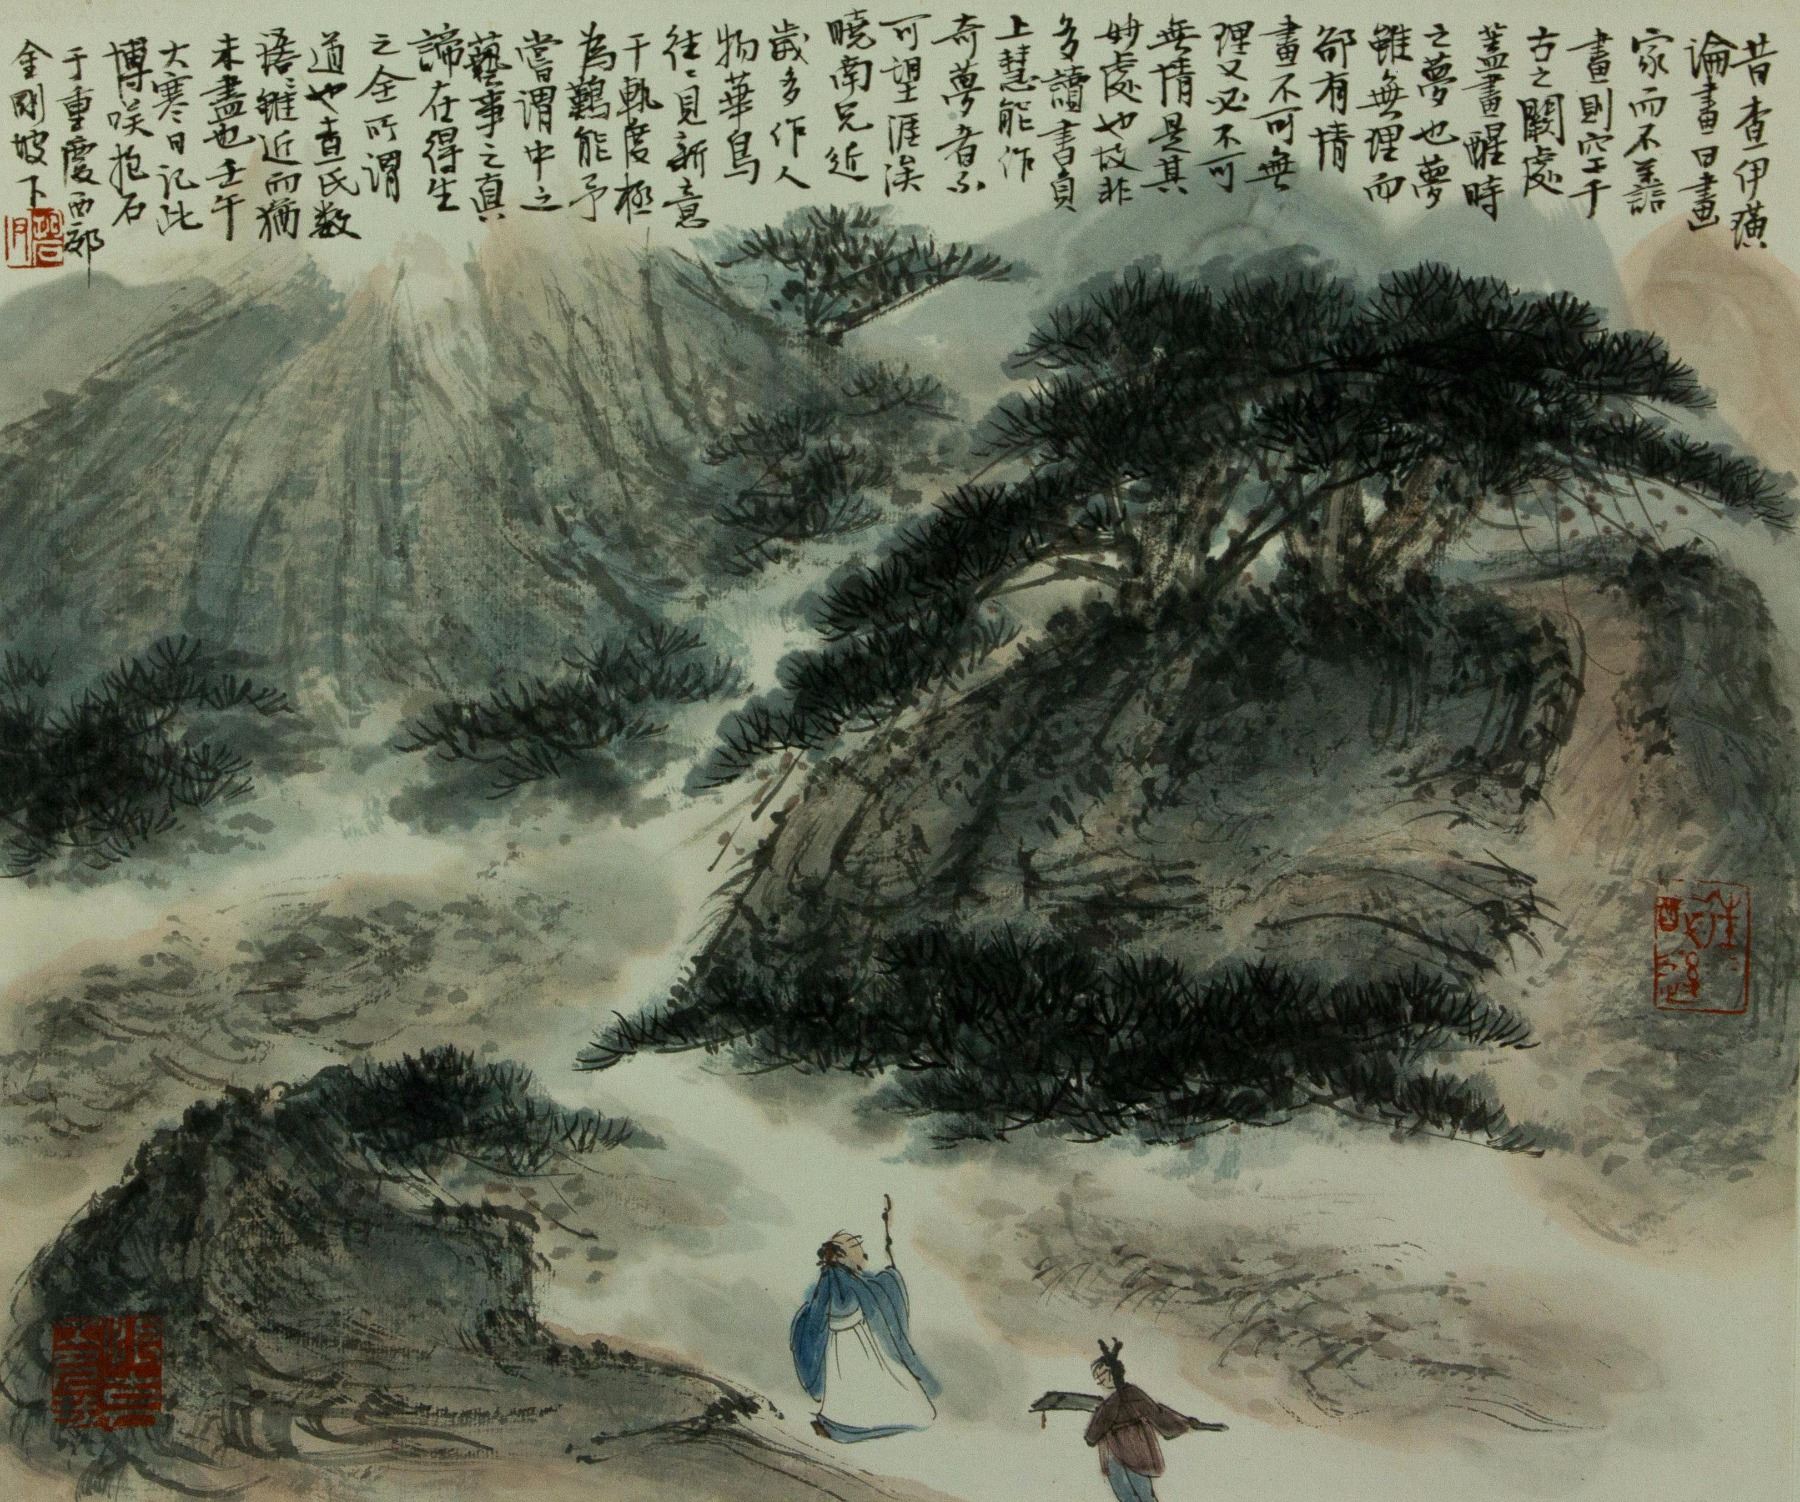 昔查伊璜
論畫曰畫
家而不善
畫則空千
古之闕處
蓋畫醒時
之夢也夢
雖無理而
卻有情
畫不可無
理又必不可
無情是其
妙處也故非
多讀書負
上慧能作
奇夢者不
可望涯涘
曉南兄近
歲多作人
物華鳥
往〻見新意
于軌度極
為難能予
嘗謂中之
藝事之真
諦在得生
之全所謂
道也查氏數
語〻雖近而猶
未盡也壬午
大寒日記此
博咲抱石
于重慶西郊
金剛坡下